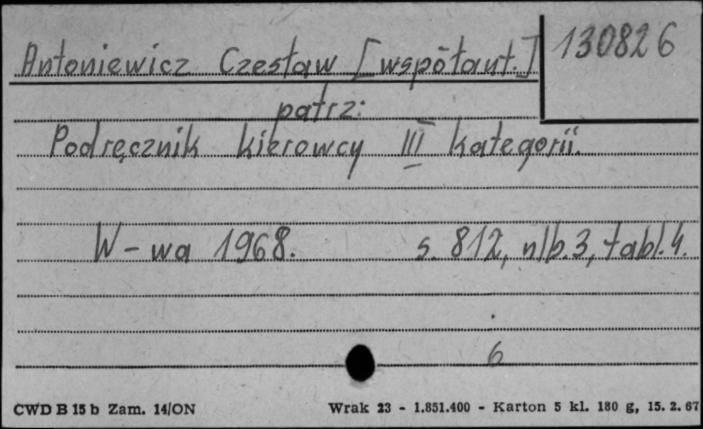 130826
Antoniewicz Czesław [współaut.]
patrz:
Podręcznik kierowcy III kategorii.
W-wa 1968. s. 812, nlb.3, tabl.4.
6
CWD B 15 b Zam. 14/ON Wrak 23 - 1.851.400 - Karton 5 kl. 180 g, 15. 2. 67